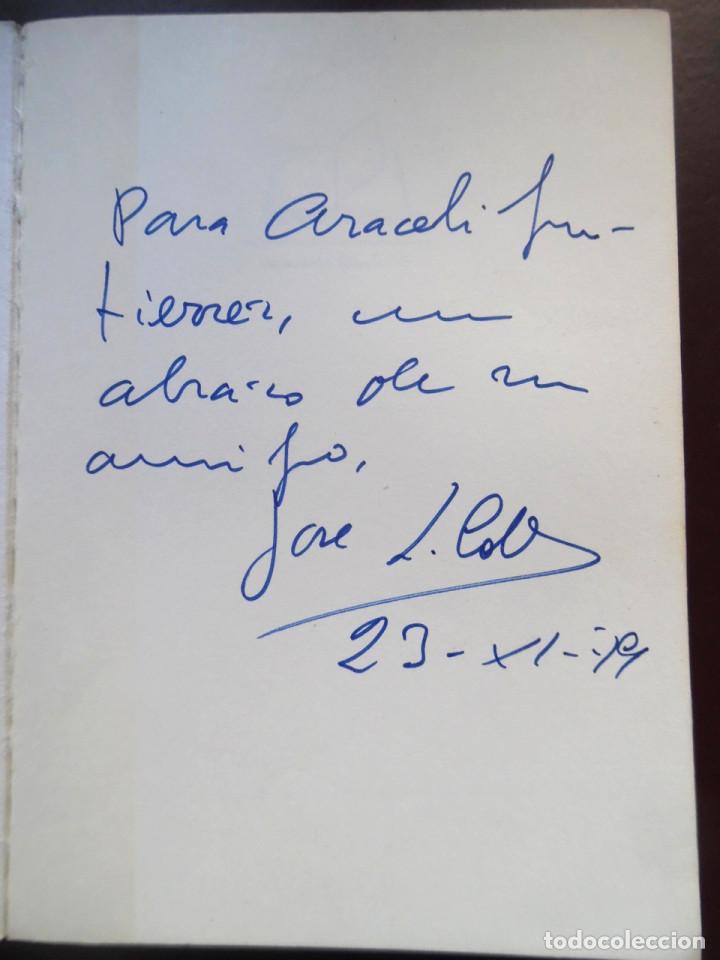 Para Araceli Gu-
tierrez, un
abrazo de su
amigo,
Jose L.
23-XI-79
todocoleccion